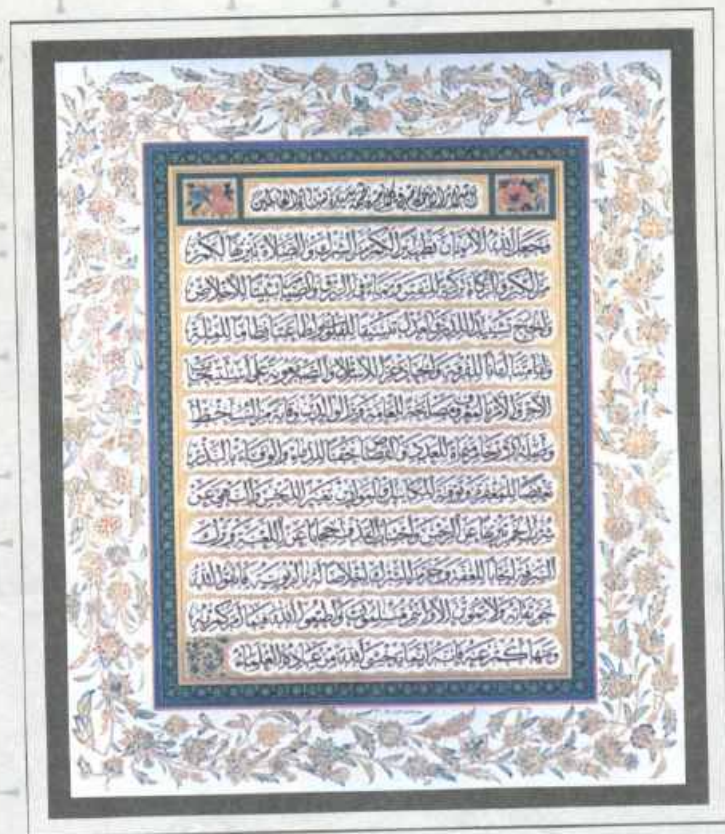 فجعل الله الإيمان تطهيرا لكم من الشرك والصلاة تنزيها لكم
عن الكبر والزكاة تزكية للنفس ونماء في الرزق والصيام تثبيتا للإخلاص
والحج تشييدا للدين والعدل تنسيقا للقلوب وإطاعتنا نظاما للملة
وإمامتنا أمانا للفرقة والجهاد عزا للإسلام والصبر معونة على استيجاب
الأجر والأمر بالمعروف مصلحة للعامة وبر الوالدين وقاية من السخط
وصلة الأرحام منماة للعدد والقصاص حقنا للدماء والوفاء بالنذر
تعريضا للمغفرة وتوفية المكاييل والموازين تغييرا للبخس والنهي عن
شرب الخمر تنزيها عن الرجس واجتناب القذف حجابا عن اللعنة وترك
السرقة إيجابا للعفة وحرم الله الشرك إخلاصا له بالربوبية فاتقوا الله
حق تقاته ولا تموتن إلا وأنتم مسلمون وأطيعوا الله فيما أمركم به
ونهاكم عنه فإنه إنما يخشى الله من عباده العلماء